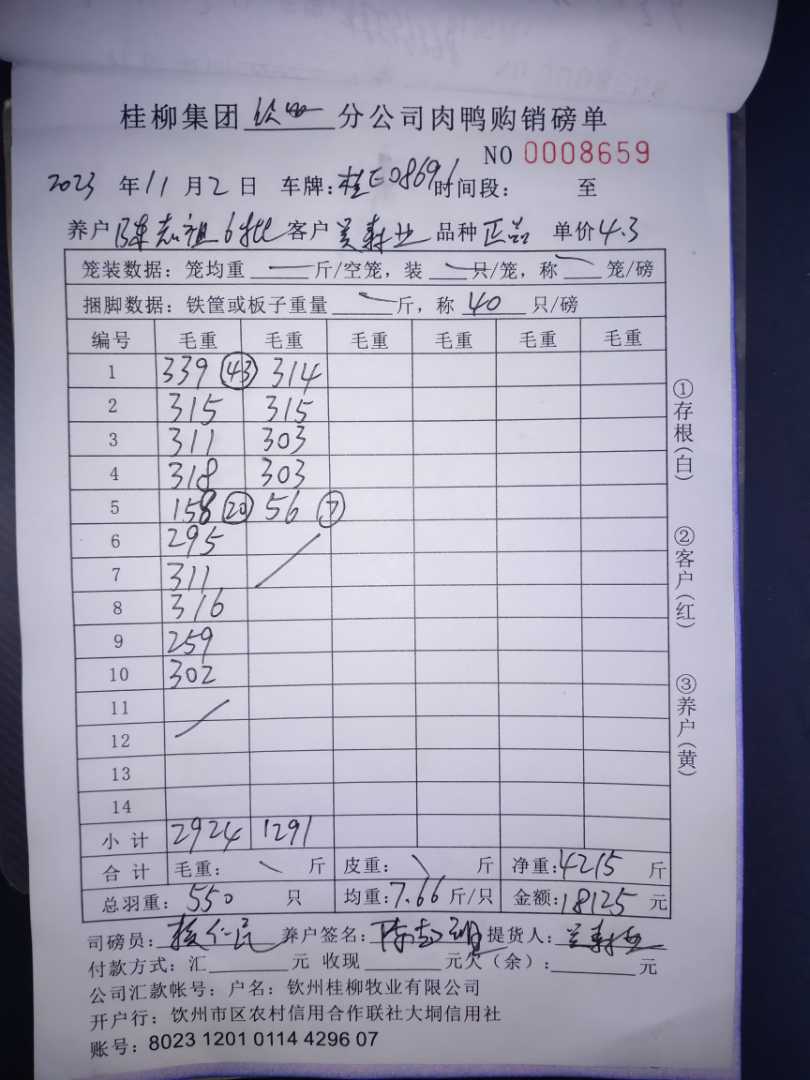 桂柳集团 钦州 分公司肉鸭购销磅单
NO 0008659
2023 年 11 月 2 日 车牌: 桂E08696 时间段: 至
养户 陈志祖6批 客户 吴寿业 品种 正品 单价 4.3
笼装数据: 笼均重 — 斤/空笼, 装 — 只/笼, 称 — 笼/磅
捆脚数据: 铁筐或板子重量 — 斤, 称 40 只/磅
编号 毛重 毛重 毛重 毛重 毛重 毛重
1 339 (43) 314
2 315 315
3 311 303
4 318 303
5 158 (20) 56 (7)
6 295
7 311
8 316
9 259
10 302
11
12
13
14
小计 2924 1291
合计 毛重: 斤 皮重: 斤 净重: 4215 斤
总羽重: 550 只 均重: 7.66 斤/只 金额: 18125 元
司磅员: 养户签名: 提货人: 吴寿业
付款方式: 汇 元 收现 元欠(余): 元
公司汇款帐号: 户名: 钦州桂柳牧业有限公司
开户行: 钦州市区农村信用合作联社大垌信用社
账号: 8023 1201 0114 4296 07
①存根(白)
②客户(红)
③养户(黄)